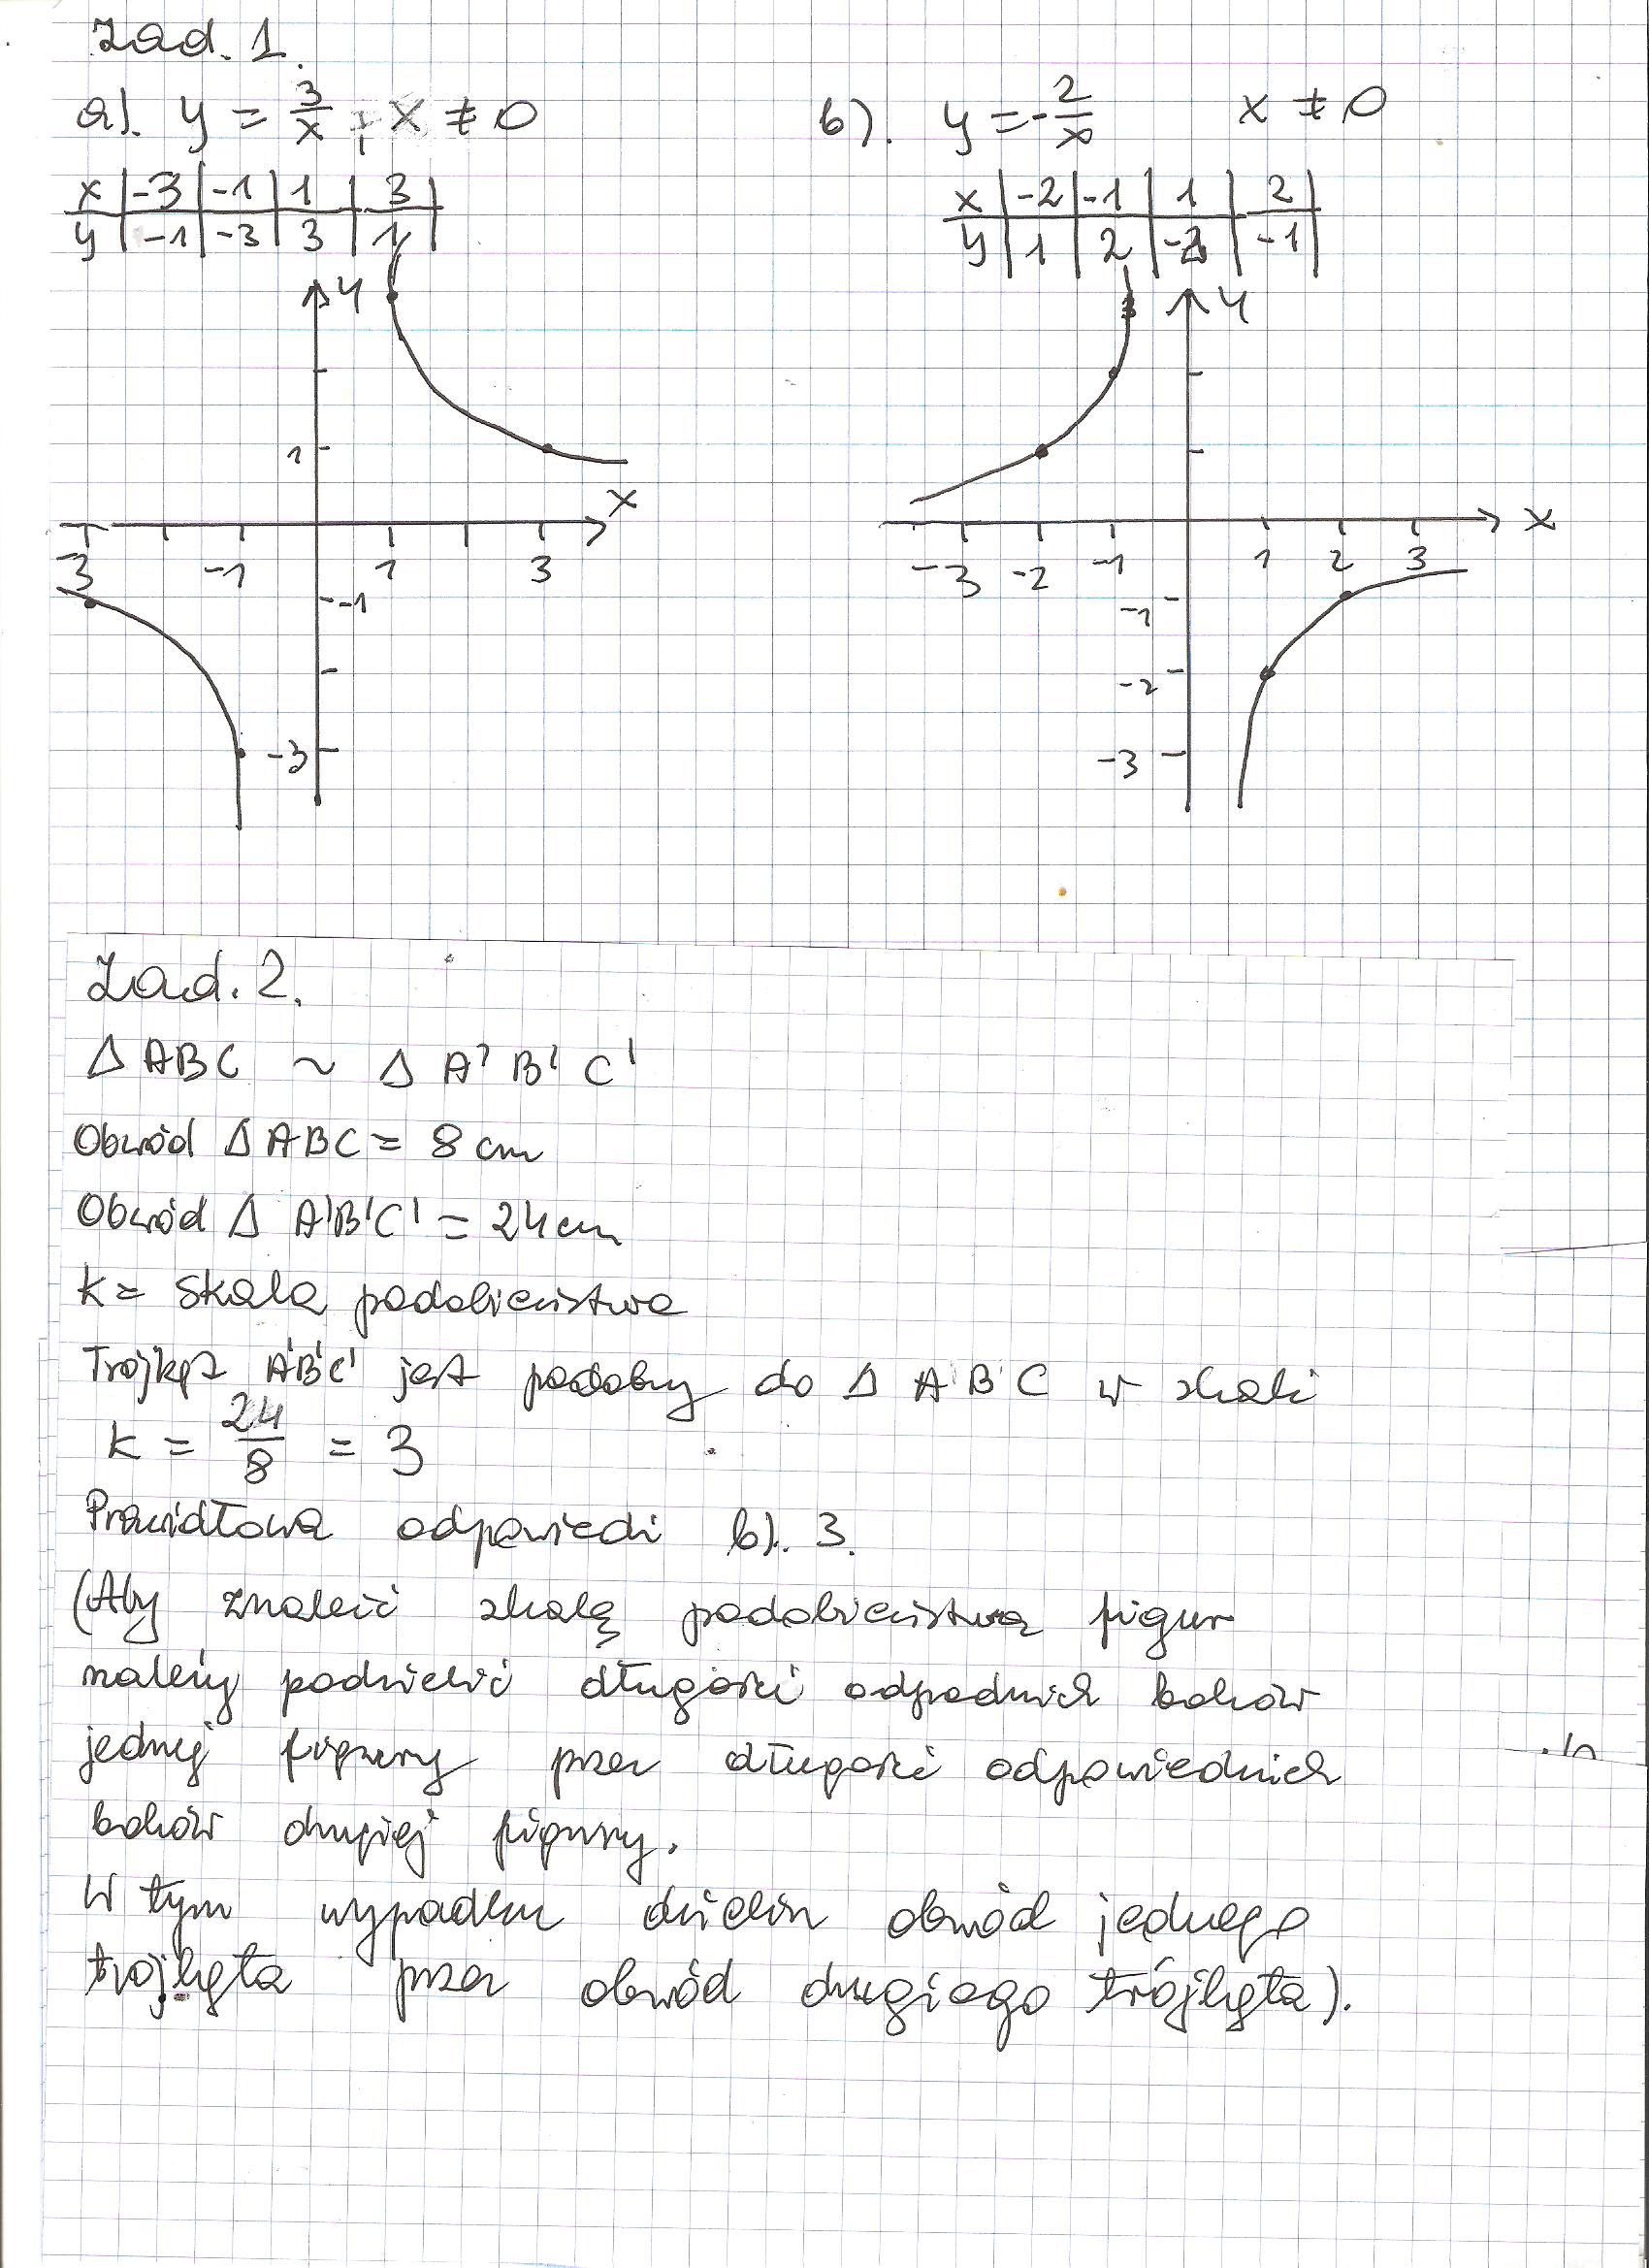 Zad. 1.
a). y = 3/x , x ≠ 0
x | -3 | -1 | 1 | 3 |
y | -1 | -3 | 3 | 1 |
Y
1
X
-3 -1 1 3
-1
-3
b). y = -2/x x ≠ 0
x | -2 | -1 | 1 | 2 |
y | 1 | 2 | -2 | -1 |
Y
X
-3 -2 -1 1 2 3
-1
-2
-3
Zad. 2.
Δ ABC ~ Δ A'B'C'
Obwód Δ ABC = 8 cm
Obwód Δ A'B'C' = 24 cm
k = skala podobieństwa
Trójkąt A'B'C' jest podobny do Δ ABC w skali
k = 24/8 = 3
Prawidłowa odpowiedź b). 3.
(Aby znaleźć skalę podobieństwa figur
należy podzielić długości odpodnich boków
jednej figury przez długości odpowiednich
boków drugiej figury.
W tym wypadku dzielim obwód jednego
trójkąta przez obwód drugiego trójkąta).